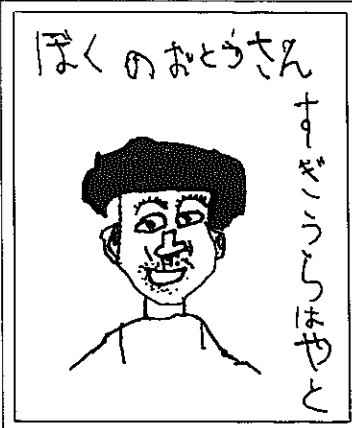 ぼくのおとうさん
すぎうらはやと